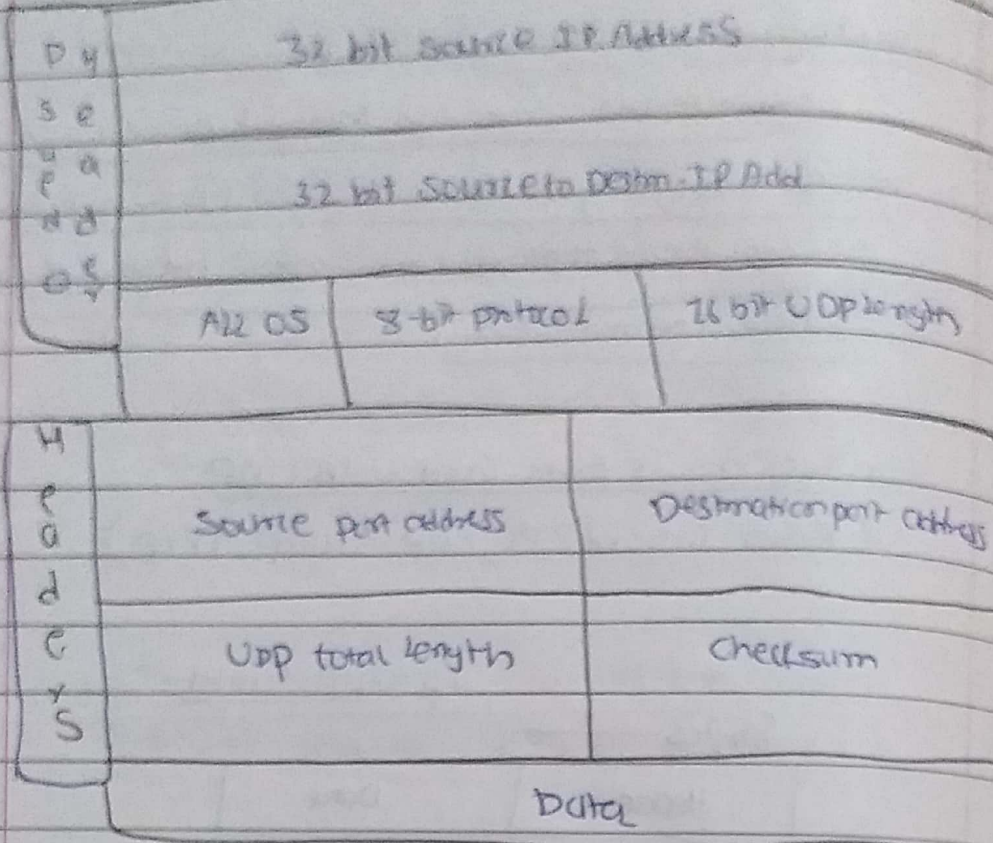 Pseudo Header
32 bit Source IP Address
32 bit Source to Destn. IP Add
All 0S 8-bit protocol 16 bit UDP Length
Headers
Source port address Destination port address
UDP total Length Checksum
Data